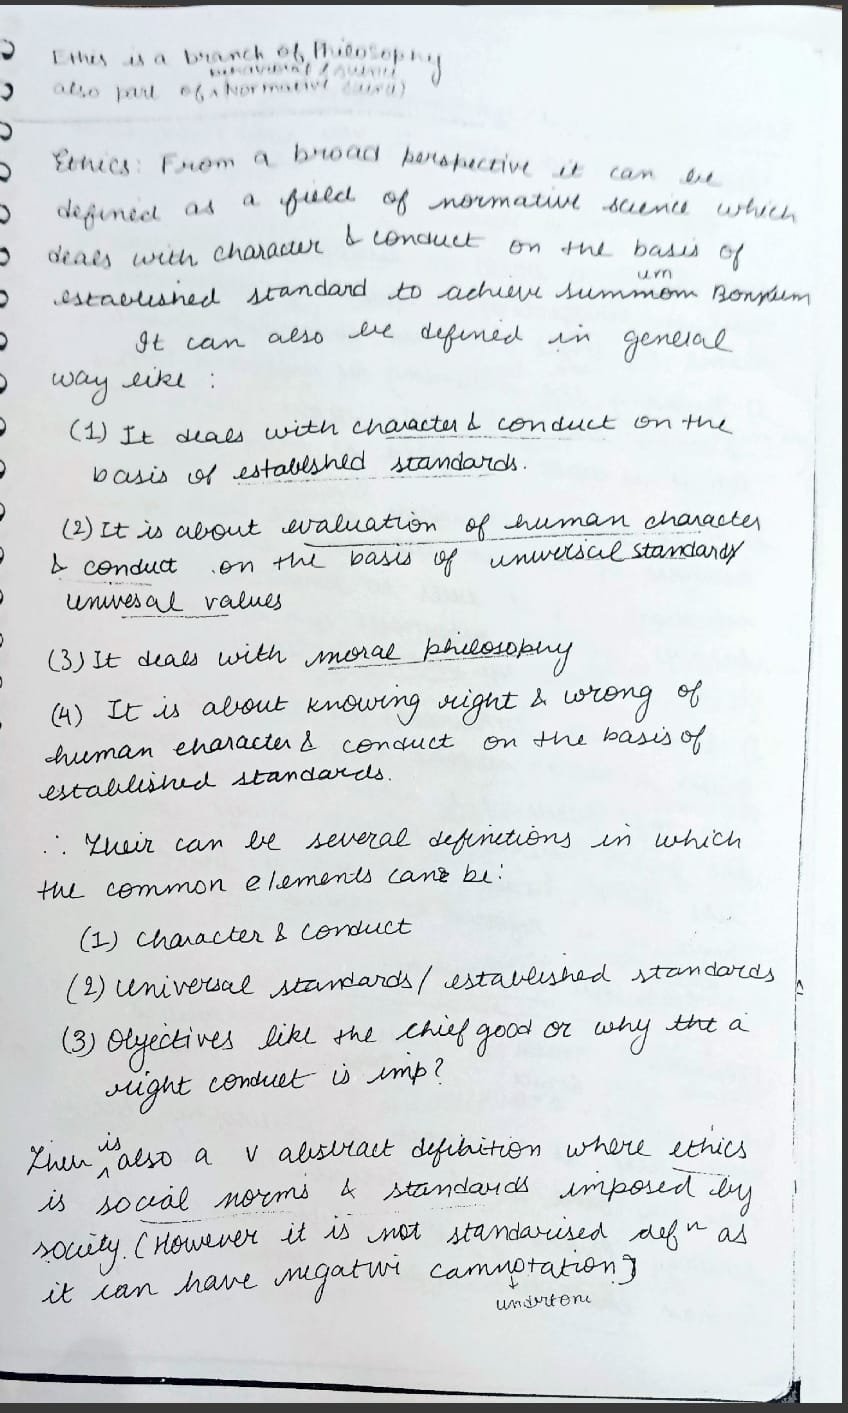 Ethis is a branch of Philosophy
behavioural science
also part of ^ Normative
Ethics: From a broad perspective it can be
defined as a field of normative science which
deals with character & conduct on the basis of
um
established standard to achieve summom Bonum
It can also be defined in general
way like :
(1) It deals with character & conduct on the
basis of establshed standards.
(2) It is about evaluation of human character
& conduct on the basis of universal standards/
univesal values
(3) It deals with moral philosophy
(4) It is about knowing right & wrong of
human character & conduct on the basis of
established standards.
∴ Their can be several definetions in which
the common elements can be:
(1) Character & Conduct
(2) Universal standards / established standards
(3) Objectives like the chief good or why tht a
right conduct is imp?
is
Then ^ also a v abstract defibition where ethics
is social norms & standards imposed by
society. (However it is not standarised defn as
it can have negatwi camnotation]
↓
undertone